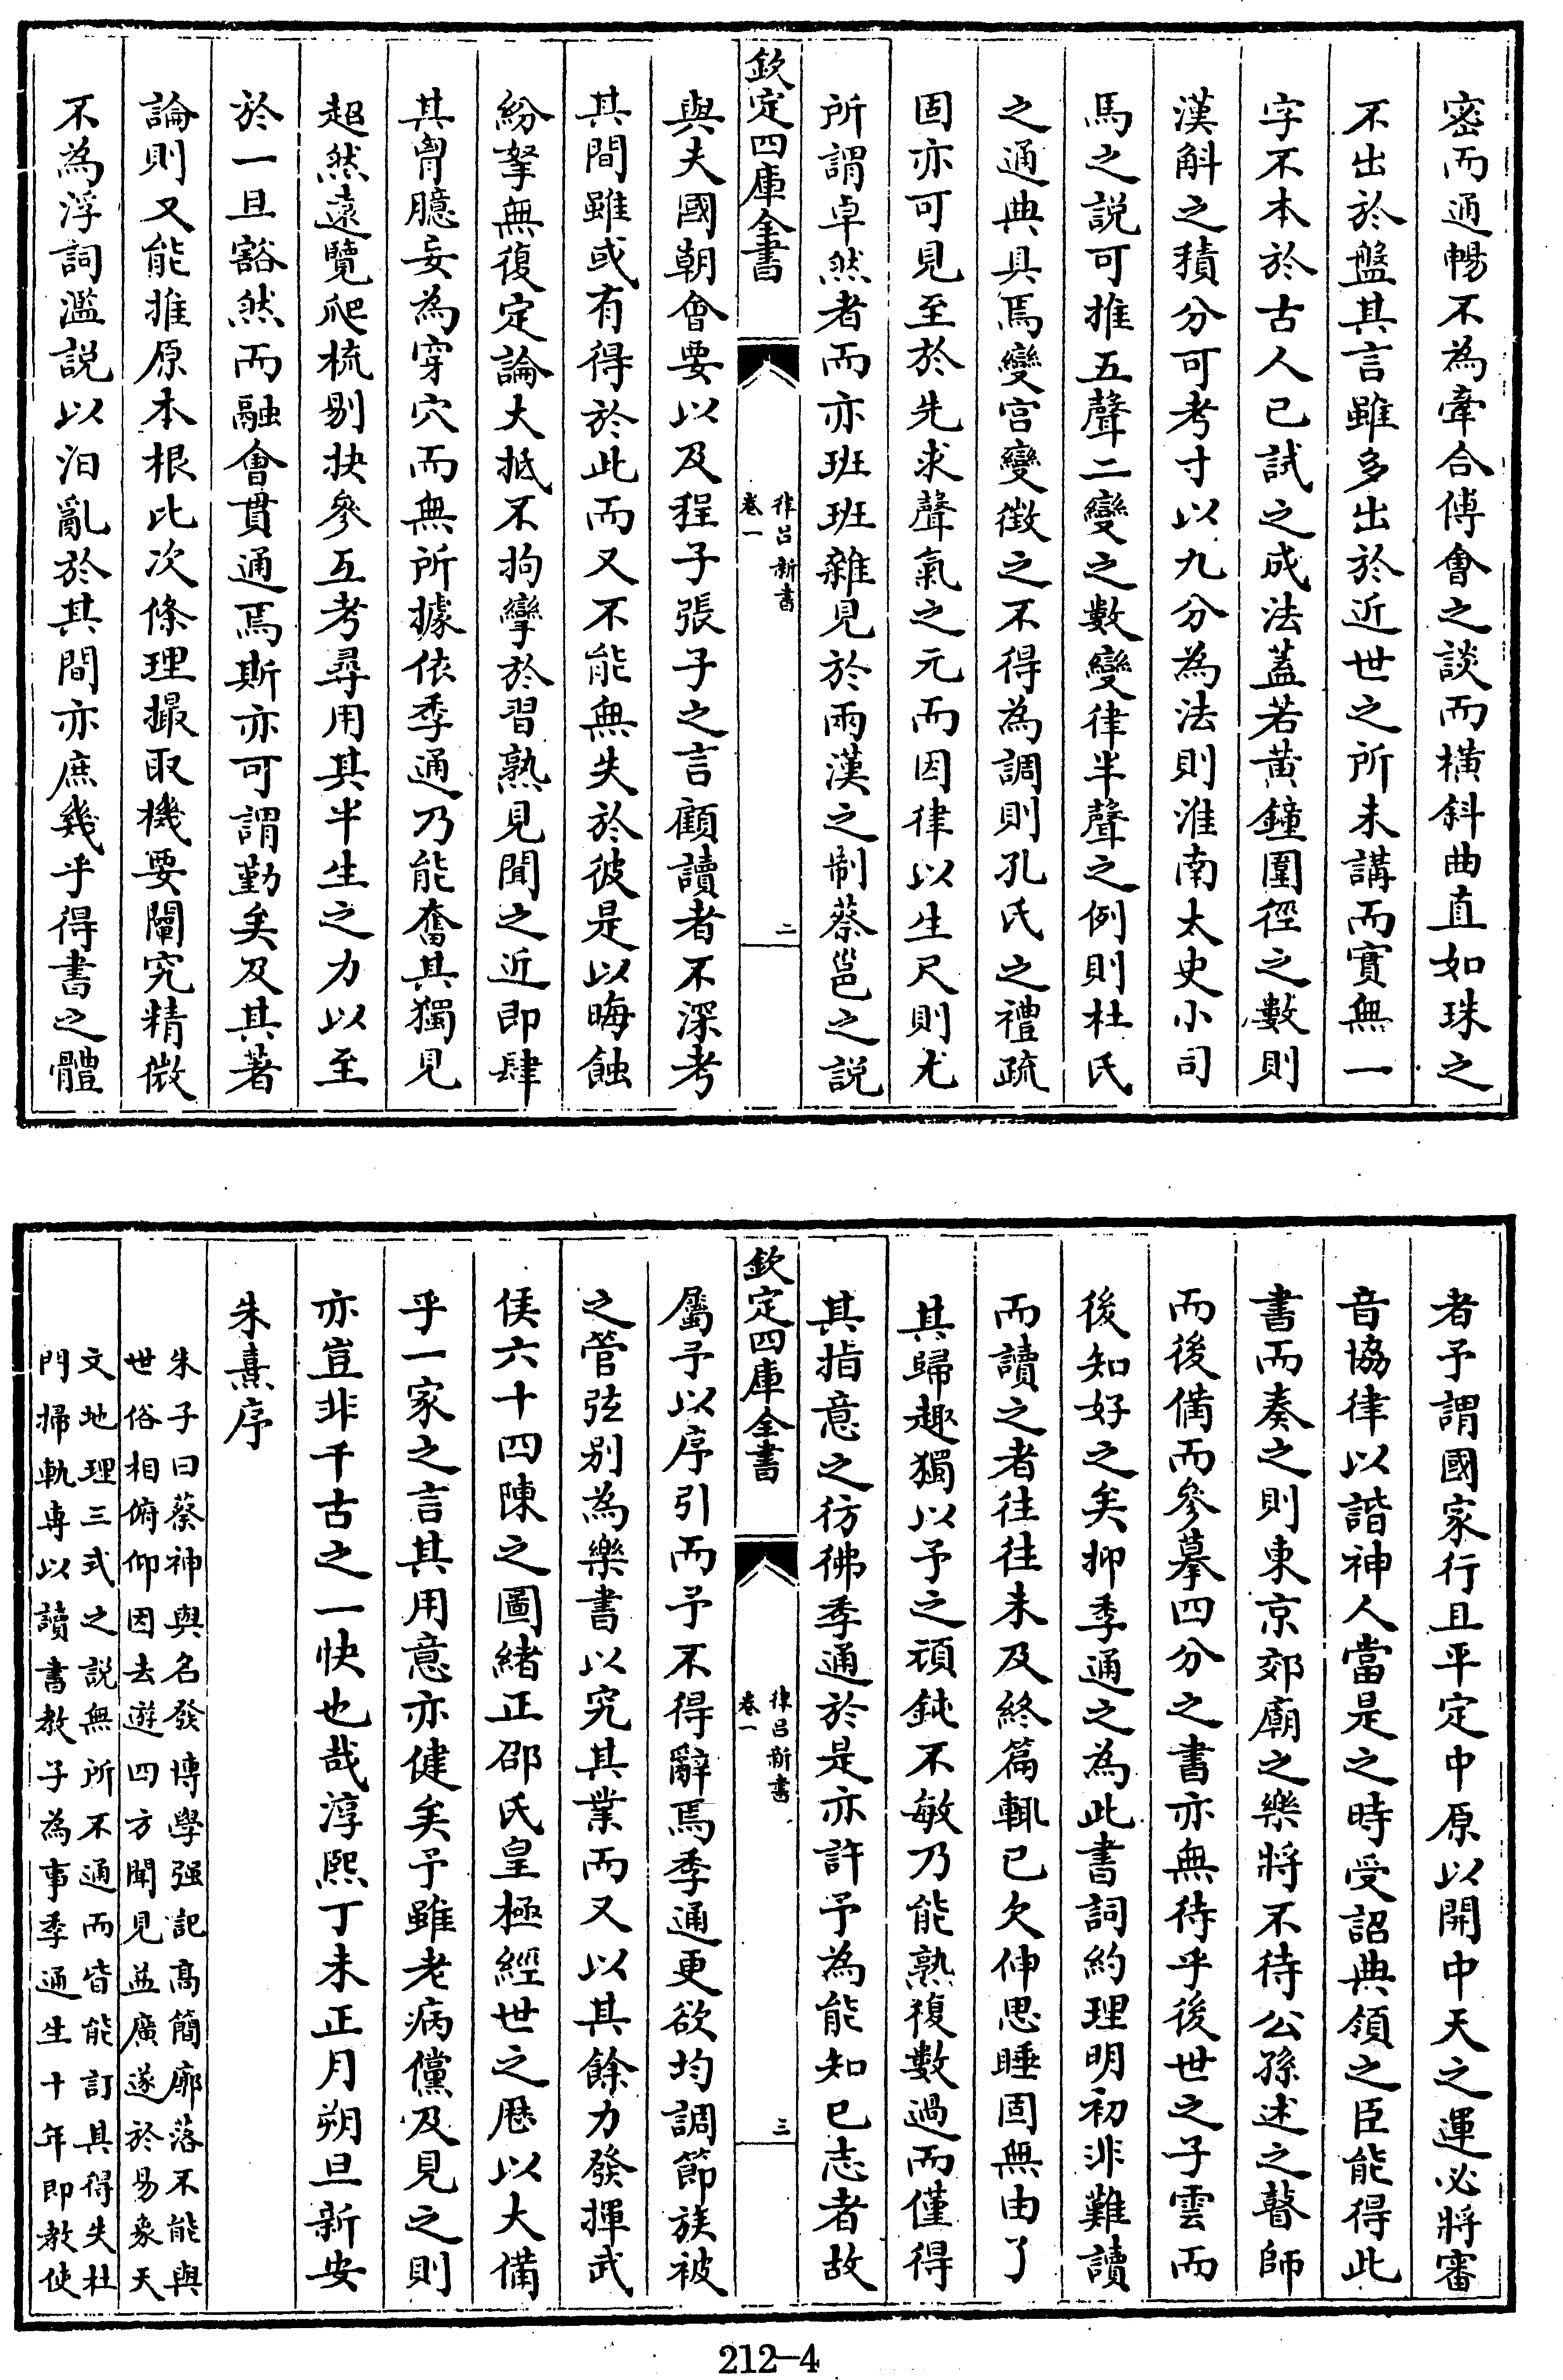 密而通暢不為牽合傅會之談而橫斜曲直如珠之
不出於盤其言雖多出於近世之所未講而實無一
字不本於古人已試之成法蓋若黃鐘圍徑之數則
漢斛之積分可考寸以九分為法則淮南太史小司
馬之說可推五聲二變之數變律半聲之例則杜氏
之通典具焉變宮變徴之不得為調則孔氏之禮疏
固亦可見至於先求聲氣之元而因律以生尺則尤
所謂卓然者而亦班班雜見於兩漢之制蔡邕之說
欽定四庫全書
律呂新書
卷一
二
與夫國朝會要以及程子張子之言顧讀者不深考
其間雖或有得於此而又不能無失於彼是以晦蝕
紛拏無復定論大抵不拘攣於習熟見聞之近即肆
其胷臆妄為穿穴而無所據依季通乃能奮其獨見
超然遠覽爬梳剔抉參互考尋用其半生之力以至
於一旦豁然而融會貫通焉斯亦可謂勤矣及其著
論則又能推原本根比次條理撮取機要闡究精微
不為浮詞濫說以汩亂於其間亦庶幾乎得書之體
者予謂國家行且平定中原以開中天之運必將審
音協律以諧神人當是之時受詔典領之臣能得此
書而奏之則東京郊廟之樂將不待公孫述之瞽師
而後備而參摹四分之書亦無待乎後世之子雲而
後知好之矣抑季通之為此書詞約理明初非難讀
而讀之者往往未及終篇輒已欠伸思睡固無由了
其歸趣獨以予之頑鈍不敏乃能熟復數過而僅得
其指意之彷彿季通於是亦許予為能知已志者故
欽定四庫全書
律呂新書
卷一
三
屬予以序引而予不得辭焉季通更欲均調節族被
之管弦別為樂書以究其業而又以其餘力發揮武
侯六十四陳之圖緒正邵氏皇極經世之厯以大備
乎一家之言其用意亦健矣予雖老病儻及見之則
亦豈非千古之一快也哉淳熙丁未正月朔旦新安
朱熹序
朱子曰蔡神與名發博學强記高簡廓落不能與
世俗相俯仰因去遊四方聞見益廣遂於易象天
文地理三式之說無所不通而皆能訂其得失杜
門掃軌専以讀書教子為事季通生十年即教使
212-4